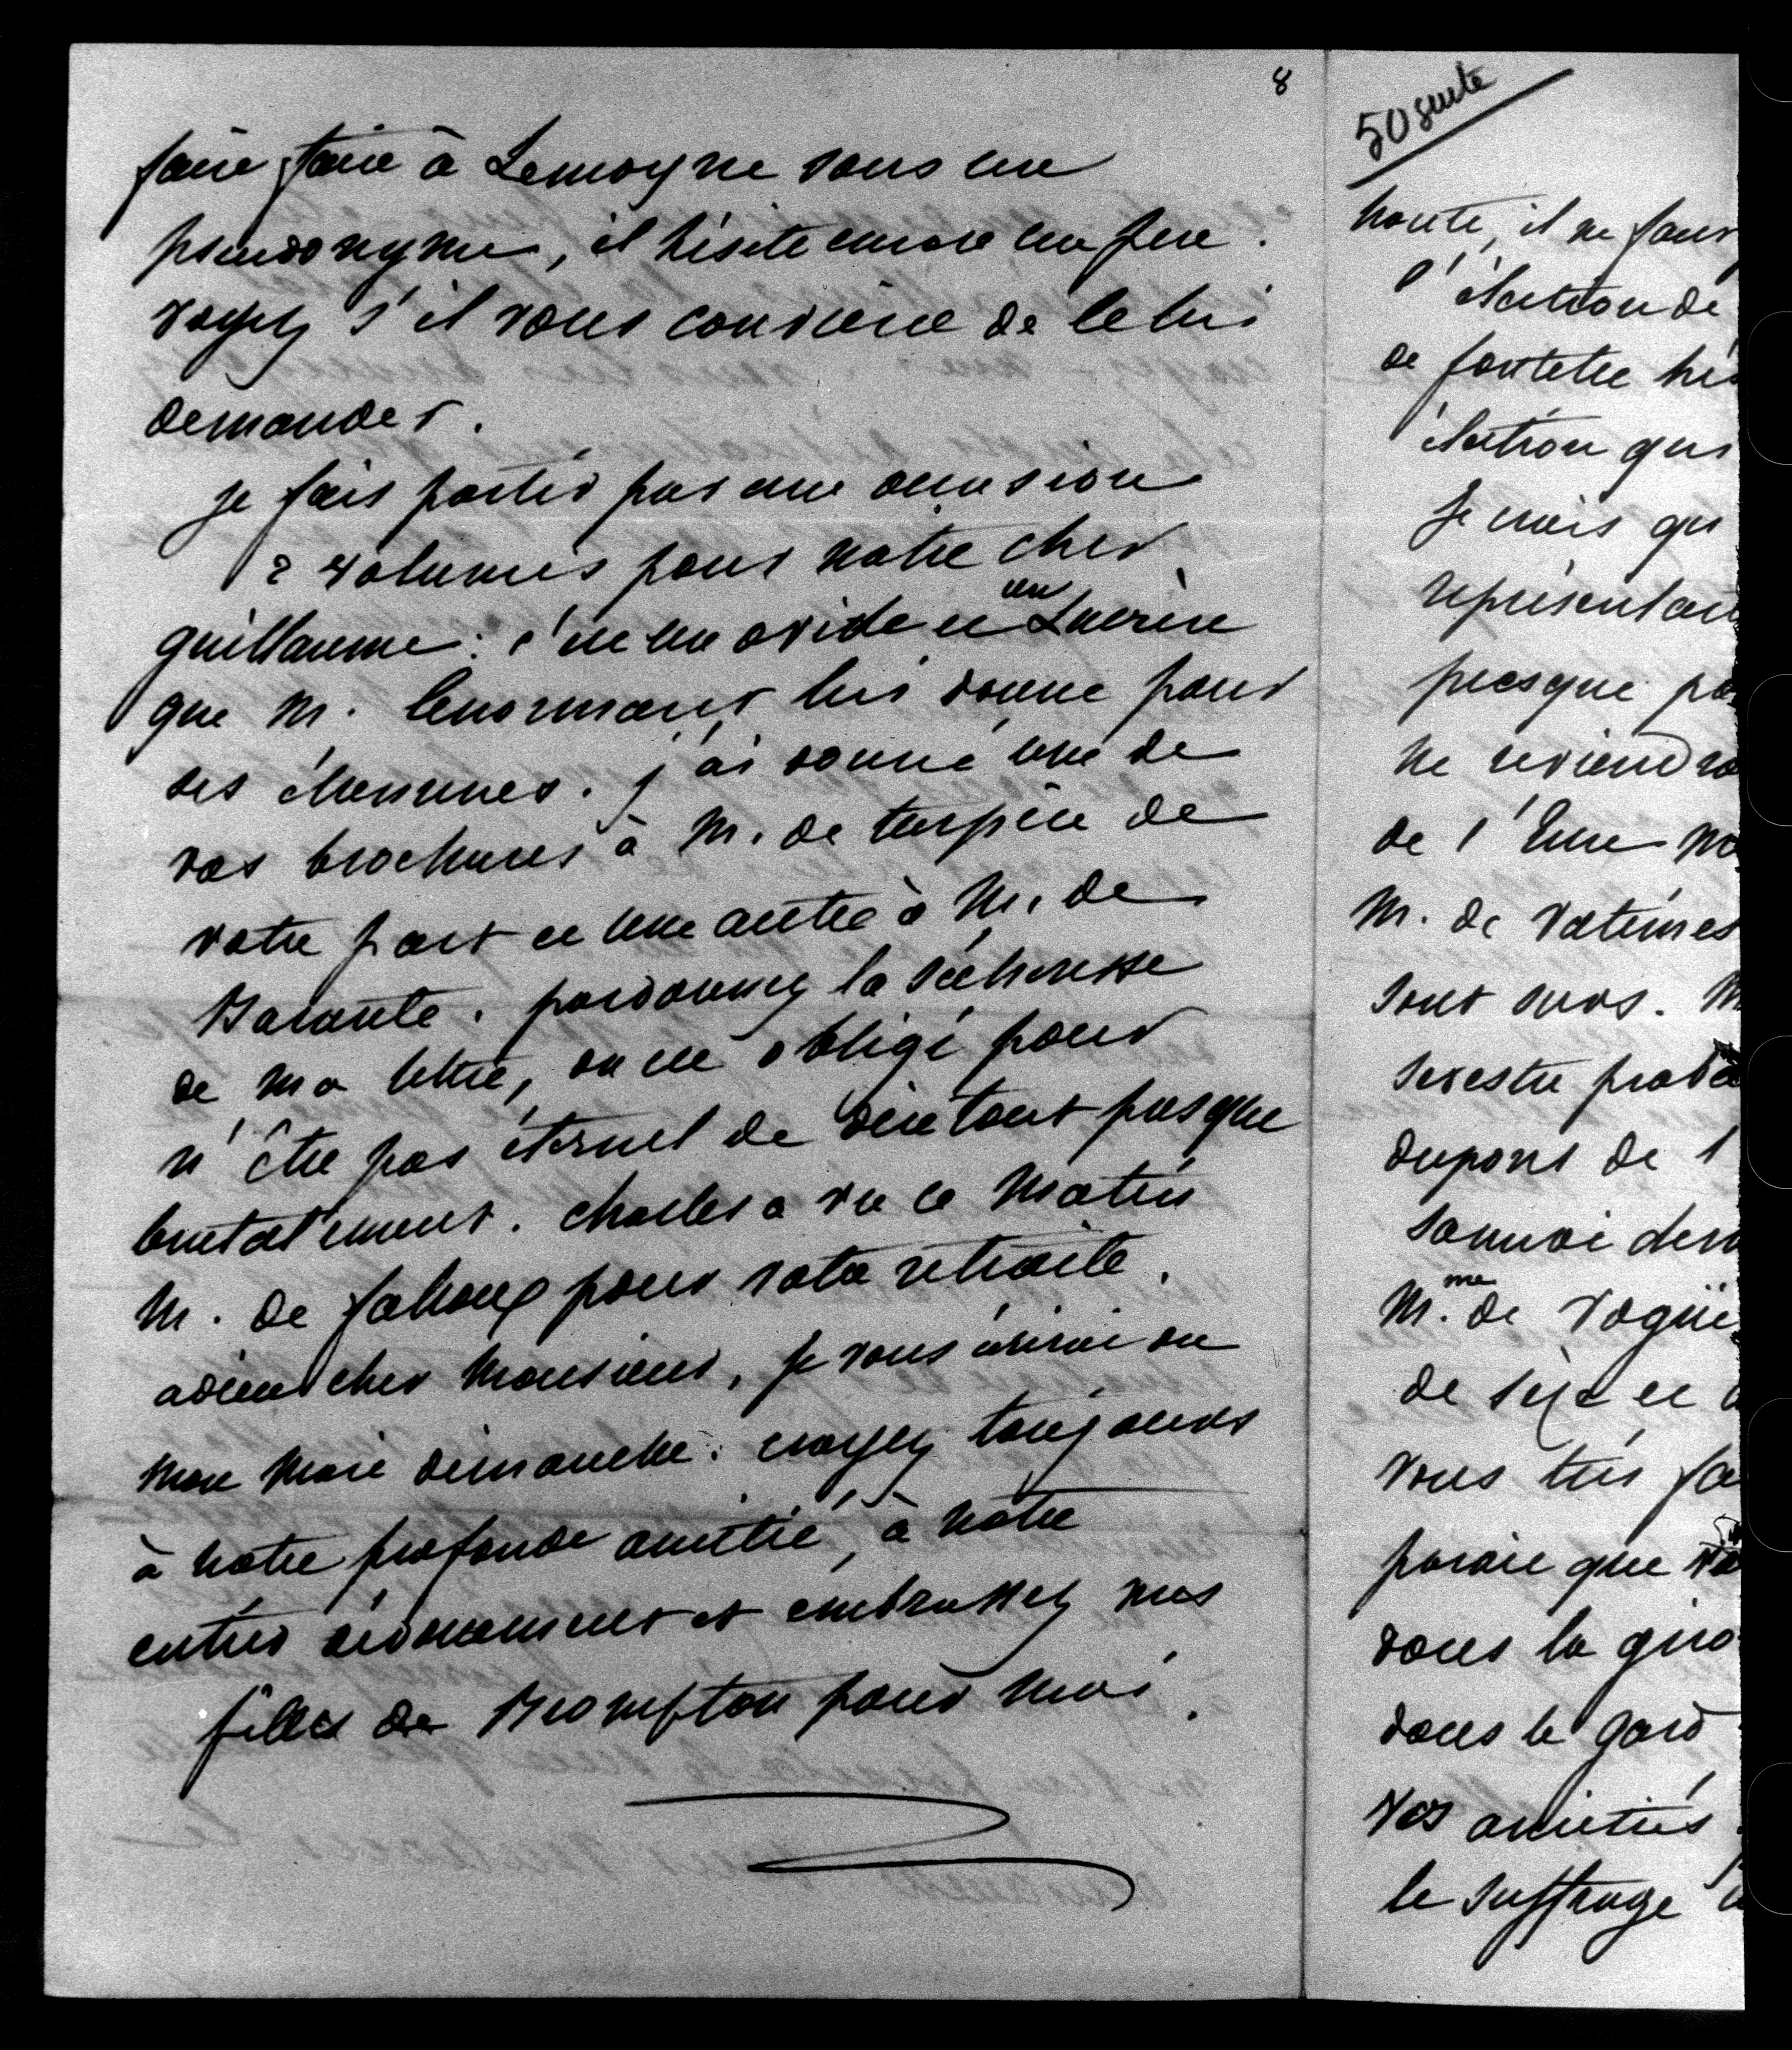 8
faire faire à Lemoyne sous un
pseudonyme, il hésite encore un peu.
voyez s'il vous convient de le lui
demander.
je fais partir par une occasion
2 volumes pour notre cher
guillaume: c'est un ovide et un Lucrèce
que M. lenormant lui donne pour
ses étrennes. j'ai donné une de
vos brochures à M. de turpin de
votre part et une autre à M. de
Barante. pardonnez la sécheresse
de ma lettre, on est obligé pour
n'être pas éternel de dire tout presque
brutalement. charles a vu ce matin
M. de fahoux pour votre retraite.
adieu cher Monsieur, je vous écrirai ou
mon mari dimanche: croyez toujours
à notre profonde amitié, à notre
entier dévouement et embrassez mes
filles de Brompton pour moi.
50 suite
haute, il ne faut
l'élection de
de
élection qui
Je crois qu
représentan
presque pa
ne reviendra
de l'Eure
M. de Vatimes
sont surs. M
Sevestre proba
dupont de l
M.me de Vogüe
de et
vous très fa
paraît que
dans la giro
dans le gard
vos amitiés
le suffrage